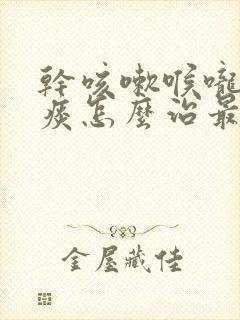 幹咳嗽喉嚨
痰怎麼治最
金屋藏佳